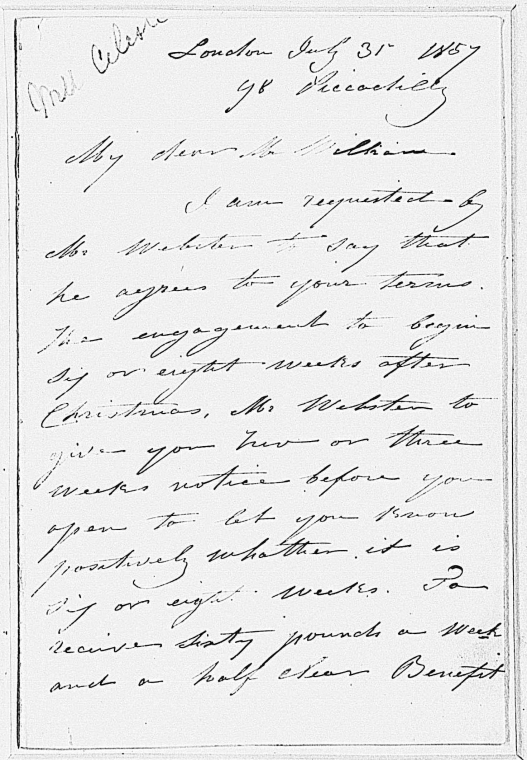 Mlle Celeste
London July 31st 1857
98 Piccadilly
My dear Mr William
I am requested by
Mr Webster to say that
he agrees to your terms.
The engagement to begin
six or eight weeks after
Christmas, Mr Webster to
give you two or three
weeks notice before you
open to let you know
positively whather it is
six or eight weeks. To
receive sixty pounds a week
and a half clear Benefit